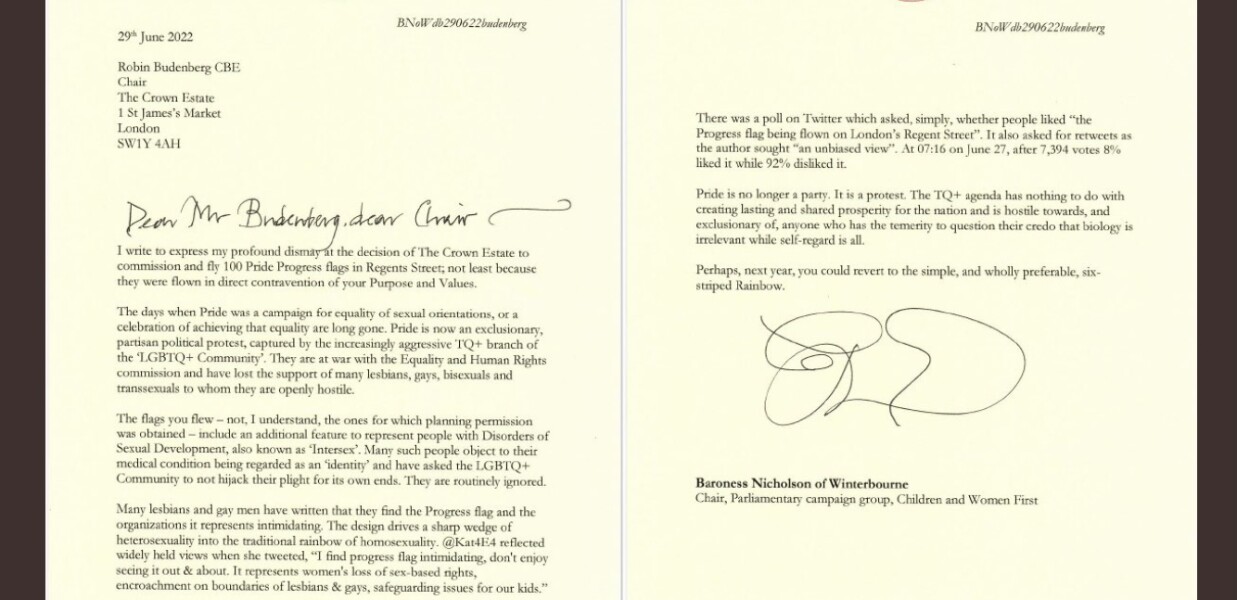 BNoWdb290622budenberg
29th June 2022
Robin Budenberg CBE
Chair
The Crown Estate
1 St James's Market
London
SW1Y 4AH
Dear Mr Budenberg, dear Chair
I write to express my profound dismay at the decision of The Crown Estate to
commission and fly 100 Pride Progress flags in Regents Street; not least because
they were flown in direct contravention of your Purpose and Values.
The days when Pride was a campaign for equality of sexual orientations, or a
celebration of achieving that equality are long gone. Pride is now an exclusionary,
partisan political protest, captured by the increasingly aggressive TQ+ branch of
the 'LGBTQ+ Community'. They are at war with the Equality and Human Rights
commission and have lost the support of many lesbians, gays, bisexuals and
transsexuals to whom they are openly hostile.
The flags you flew – not, I understand, the ones for which planning permission
was obtained – include an additional feature to represent people with Disorders of
Sexual Development, also known as 'Intersex'. Many such people object to their
medical condition being regarded as an 'identity' and have asked the LGBTQ+
Community to not hijack their plight for its own ends. They are routinely ignored.
Many lesbians and gay men have written that they find the Progress flag and the
organizations it represents intimidating. The design drives a sharp wedge of
heterosexuality into the traditional rainbow of homosexuality. @Kat4E4 reflected
widely held views when she tweeted, "I find progress flag intimidating, don't enjoy
seeing it out & about. It represents women's loss of sex-based rights,
encroachment on boundaries of lesbians & gays, safeguarding issues for our kids."
BNoWdb290622budenberg
There was a poll on Twitter which asked, simply, whether people liked "the
Progress flag being flown on London's Regent Street". It also asked for retweets as
the author sought "an unbiased view". At 07:16 on June 27, after 7,394 votes 8%
liked it while 92% disliked it.
Pride is no longer a party. It is a protest. The TQ+ agenda has nothing to do with
creating lasting and shared prosperity for the nation and is hostile towards, and
exclusionary of, anyone who has the temerity to question their credo that biology is
irrelevant while self-regard is all.
Perhaps, next year, you could revert to the simple, and wholly preferable, six-
striped Rainbow.
Baroness Nicholson of Winterbourne
Chair, Parliamentary campaign group, Children and Women First